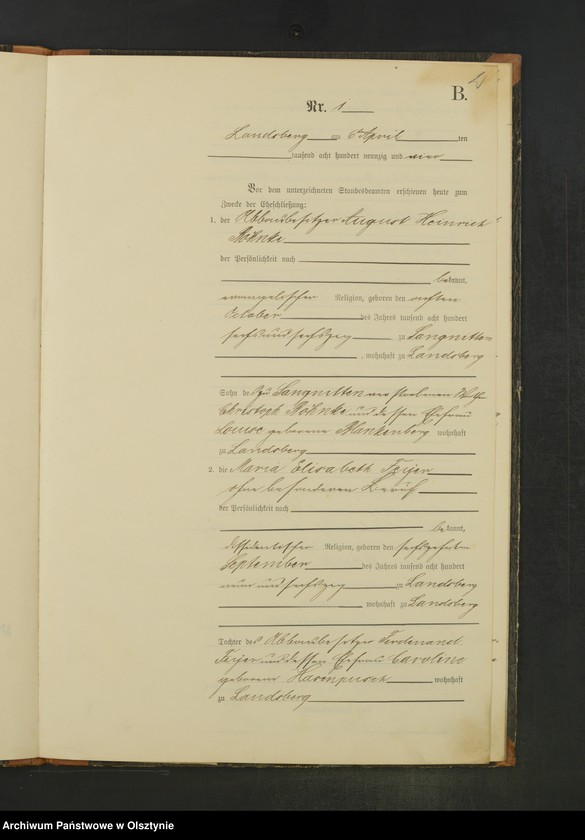 B.
Nr. 1
Landsberg am 6. April ten
tausend acht hundert neunzig und vier
Vor dem unterzeichneten Standesbeamten erschienen heute zum
Zwecke der Eheschließung:
1. der Abbaubesitzer August Heinrich
der Persönlichkeit nach
bekannt,
evangelischer Religion, geboren den
October des Jahres tausend acht hundert
sechs und sechszig zu Sangnitten
, wohnhaft zu Landsberg
Sohn des zu Sangnitten verstorbenen
Christoph und dessen Ehefrau
Louise geborene Blankenberg wohnhaft
zu Landsberg
2. die Maria Elisabeth
ohne besonderen Beruf
der Persönlichkeit nach
bekannt,
dissidentischer Religion, geboren den
September des Jahres tausend acht hundert
neun und sechszig zu Landsberg
wohnhaft zu Landsberg
Tochter des Abbaubesitzer Ferdinand
und dessen Ehefrau Caroline
geborene wohnhaft
zu Landsberg
Archiwum Państwowe w Olsztynie